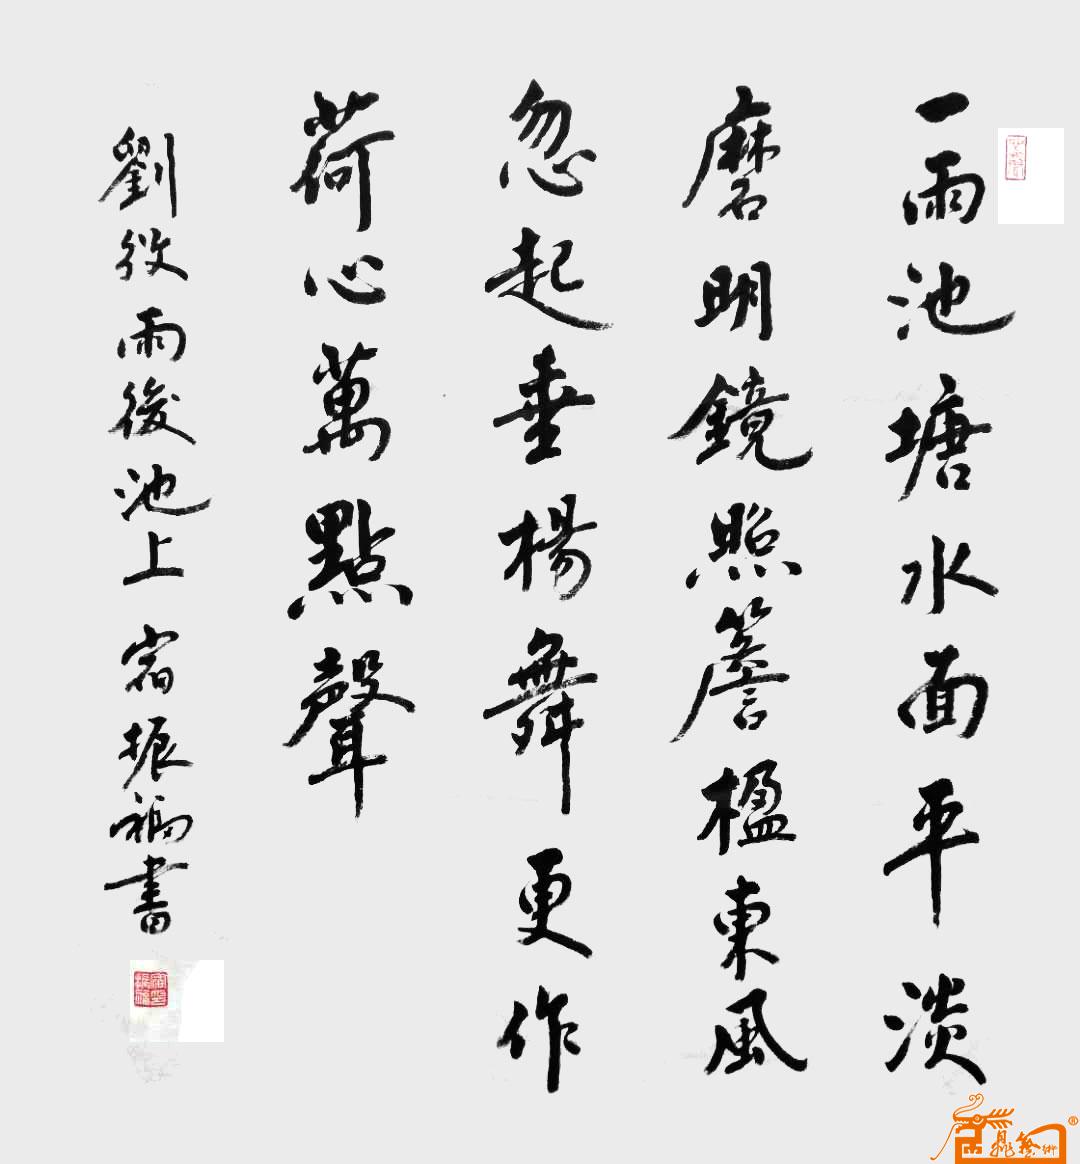 一雨池塘水面平淡
磨明鏡照簷楹東風
忽起垂楊舞更作
荷心萬點聲
劉攽雨後池上 宿振福書